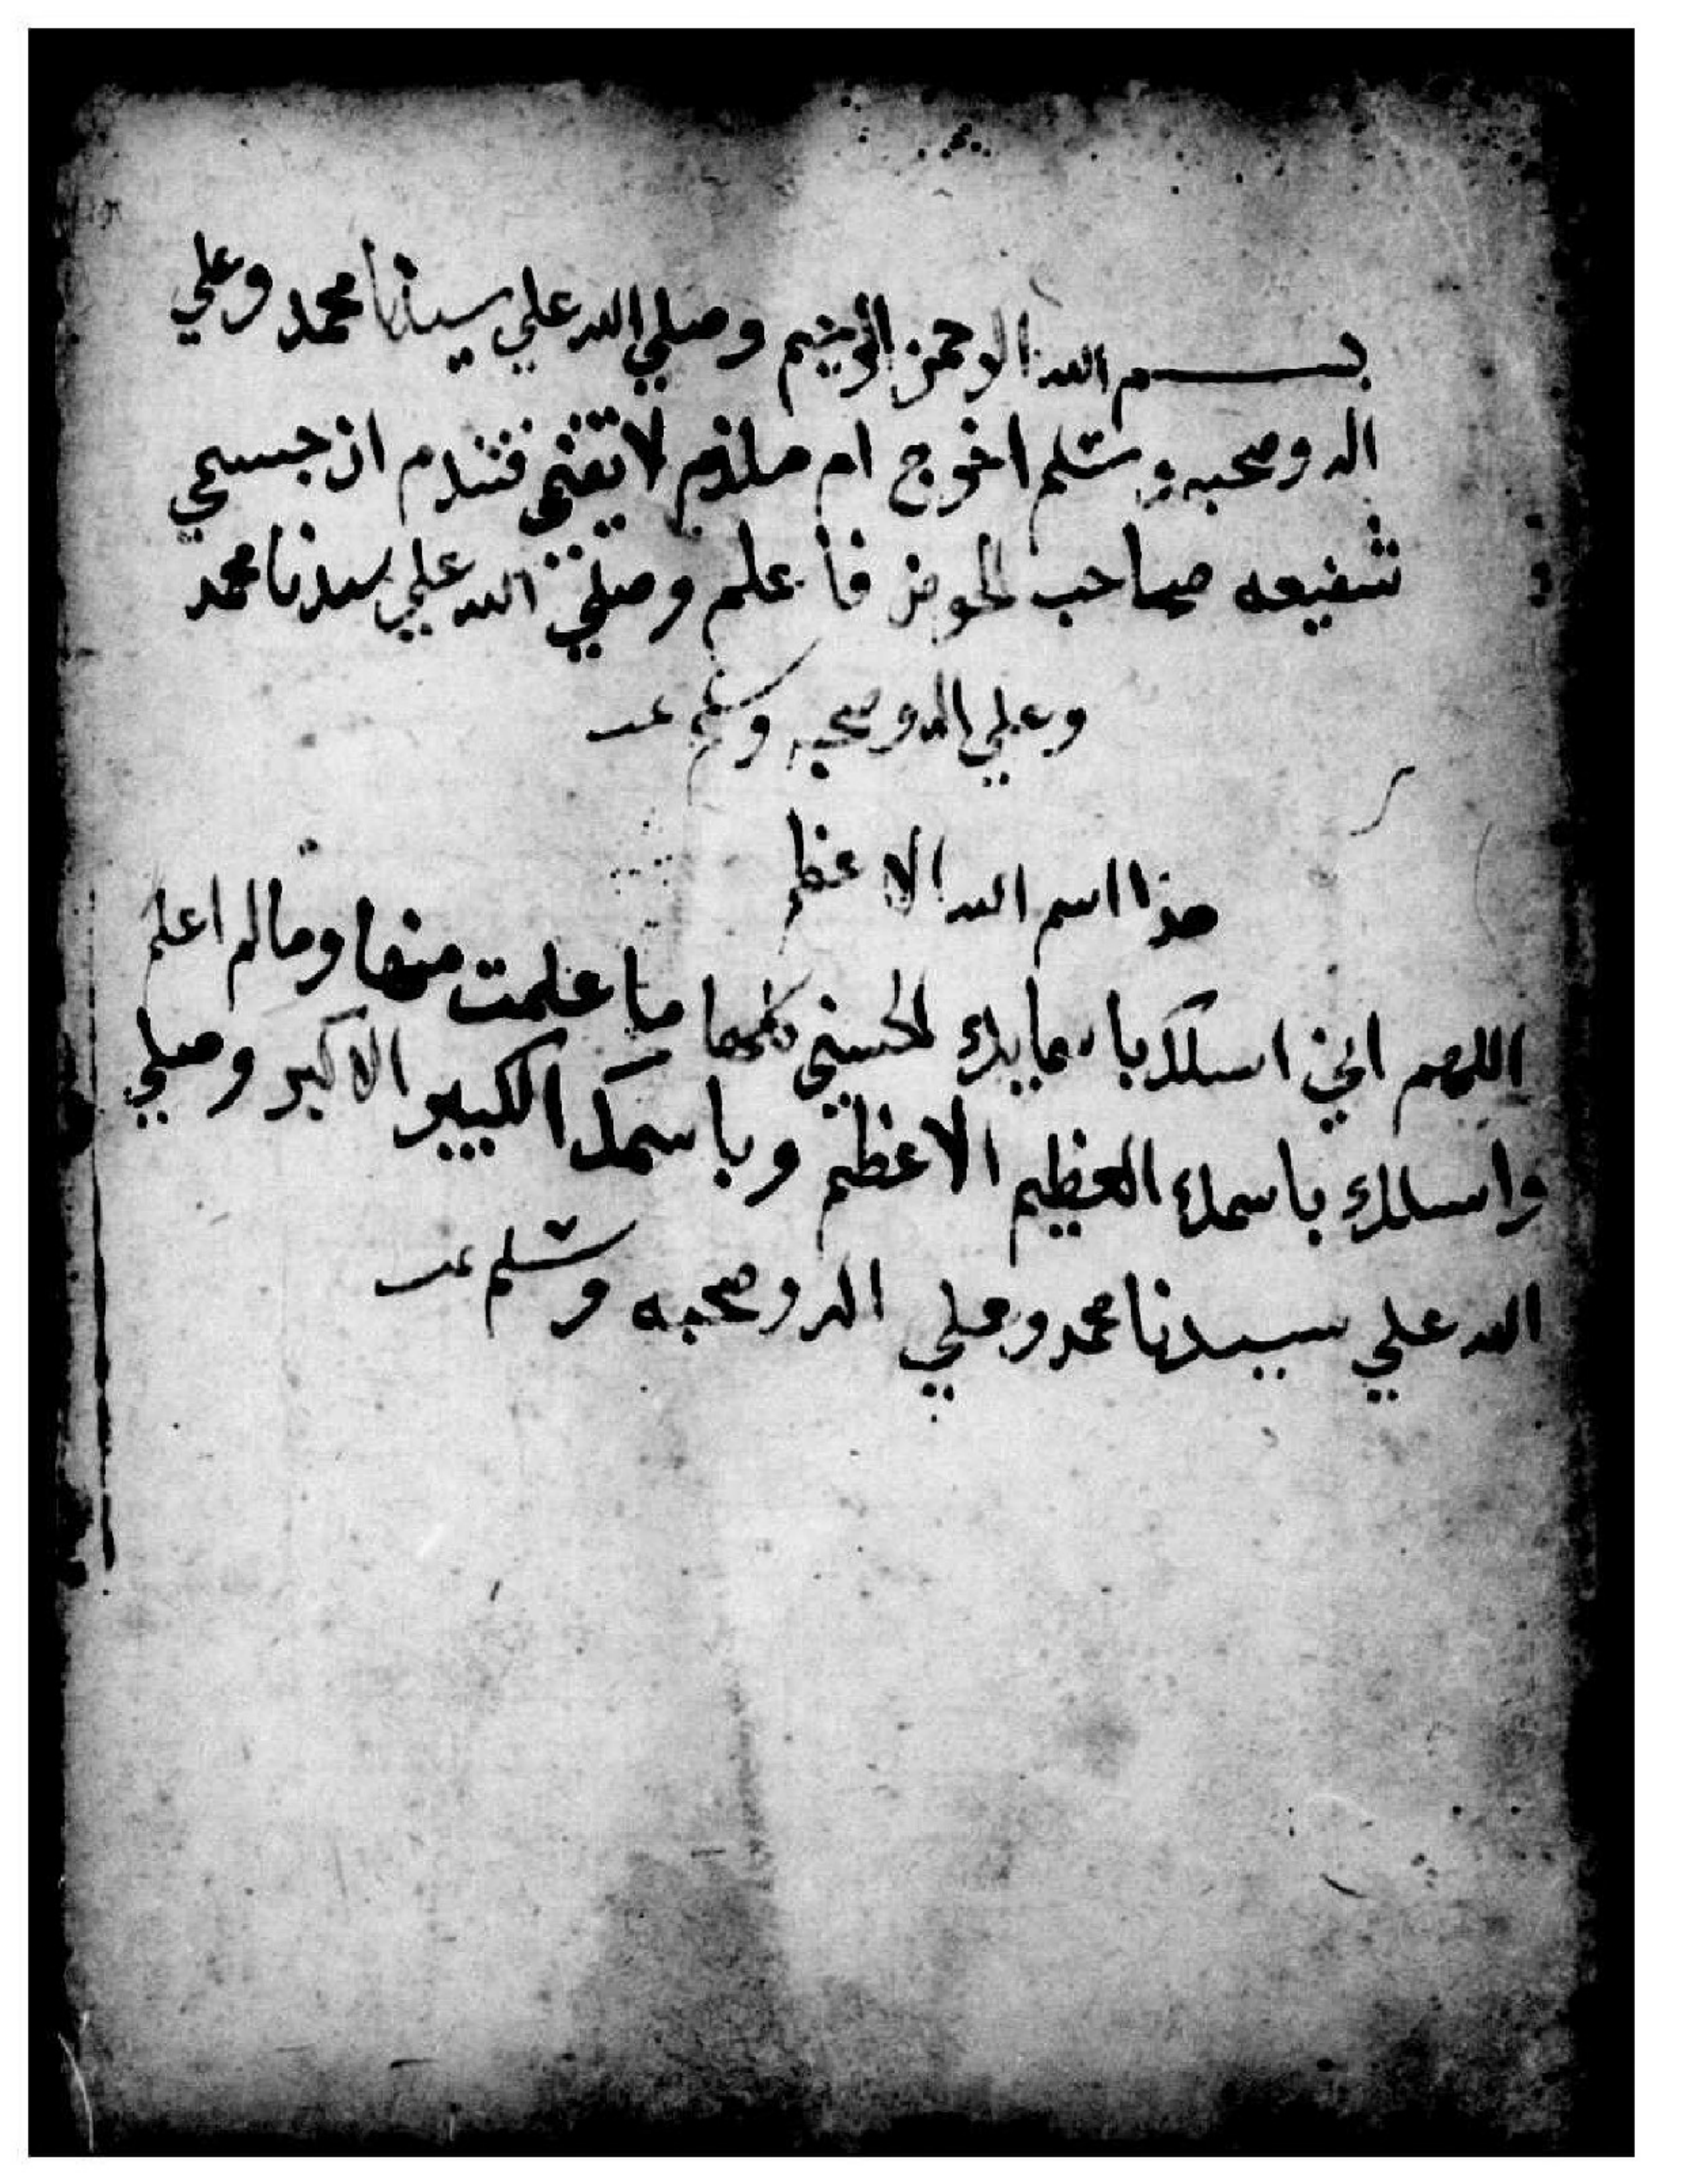 بسم الله الرحمن الرحيم وصلي الله علي سيدنا محمد وعلي
اله وصحبه وسلم اخرج ام ملدم لا تقمي فتندم ان جسمي
شفيعه صاحب الحوض فاعلم وصلي الله علي سيدنا محمد
وعلي اله وصحبه وسلم
هذا اسم الله الاعظم
اللهم اني اسلك باسمايك الحسني كلها ما علمت منها ومالم اعلم
واسلك باسمك العظيم الاعظم وباسمك الكبير الاكبر وصلي
الله علي سيدنا محمد وعلي اله وصحبه وسلم